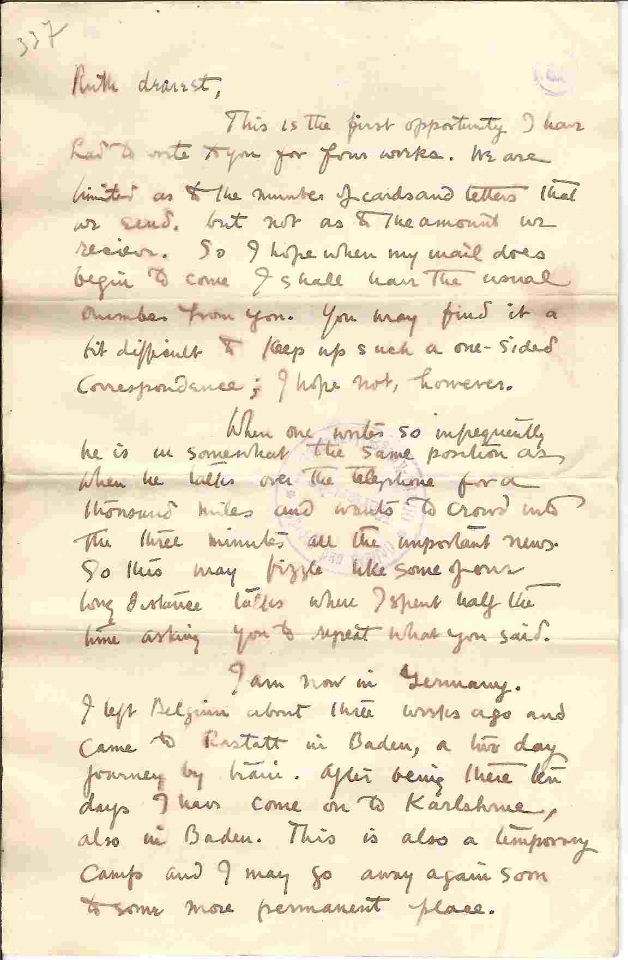 337
Ruth dearest,
This is the first opportunity I have
had to write to you for four weeks. We are
limited as to the number of cards and letters that
we send, but not as to the amount we
recieve. So I hope when my mail does
begin to come I shall have the usual
number from you. You may find it a
bit difficult to keep up such a one-sided
correspondence; I hope not, however.
When one writes so infrequently
he is in somewhat the same position as
when he talks over the telephone for a
thousand miles and wants to crowd into
the three minutes all the important news.
So this may fizzle like some of our
long distance talks where I spent half the
time asking you to repeat what you said.
I am now in Germany.
I left Belgium about three weeks ago and
came to Rastatt in Baden, a two day
journey by train. After being there ten
days I have come on to Karlshrue,
also in Baden. This is also a temporary
camp and I may go away again soon
to some more permanent place.